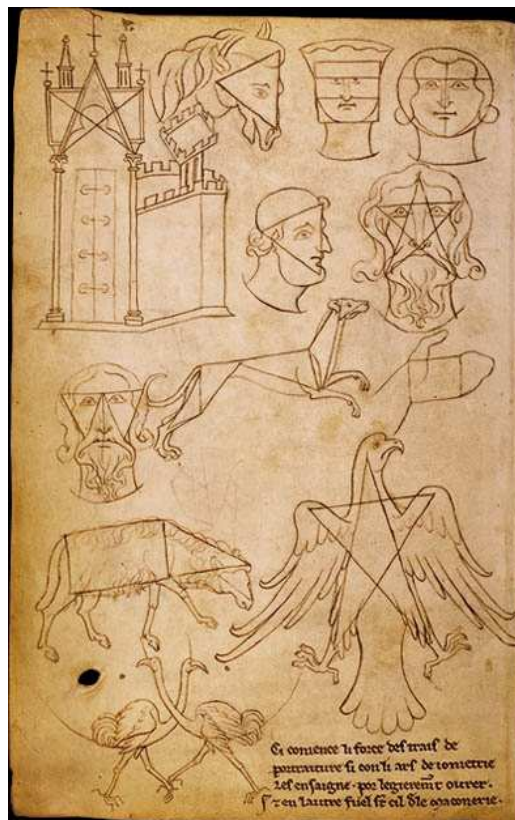 Ci comence li force des trais de
portraiture si con li ars de iometrie
les ensaigne · por legierem̄t ovrer ·
⁊ en lautre fuel st̄ cil dle maconerie ·